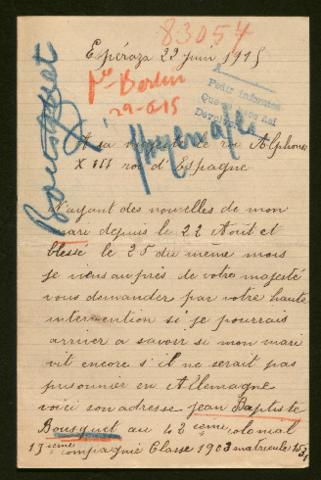 83057
Espéraza 22 juin 1915
Pr Berlin
29-6-15
Bousquet
A sa majesté le roi Alphonse
XIII roi d'Espagne
N'ayant des nouvelles de mon
mari depuis le 22 Août et
blessé le 25 du même mois
je viens auprès de votre majesté
vous demander par votre haute
intervention si je pourrais
arriver a savoir si mon mari
vit encore s'il ne serait pas
prisonnier en Allemagne
voici son adresse Jean Baptiste
Bousquet au 42 ieme colonial
13 ieme compagnie Classe 1903 matricule